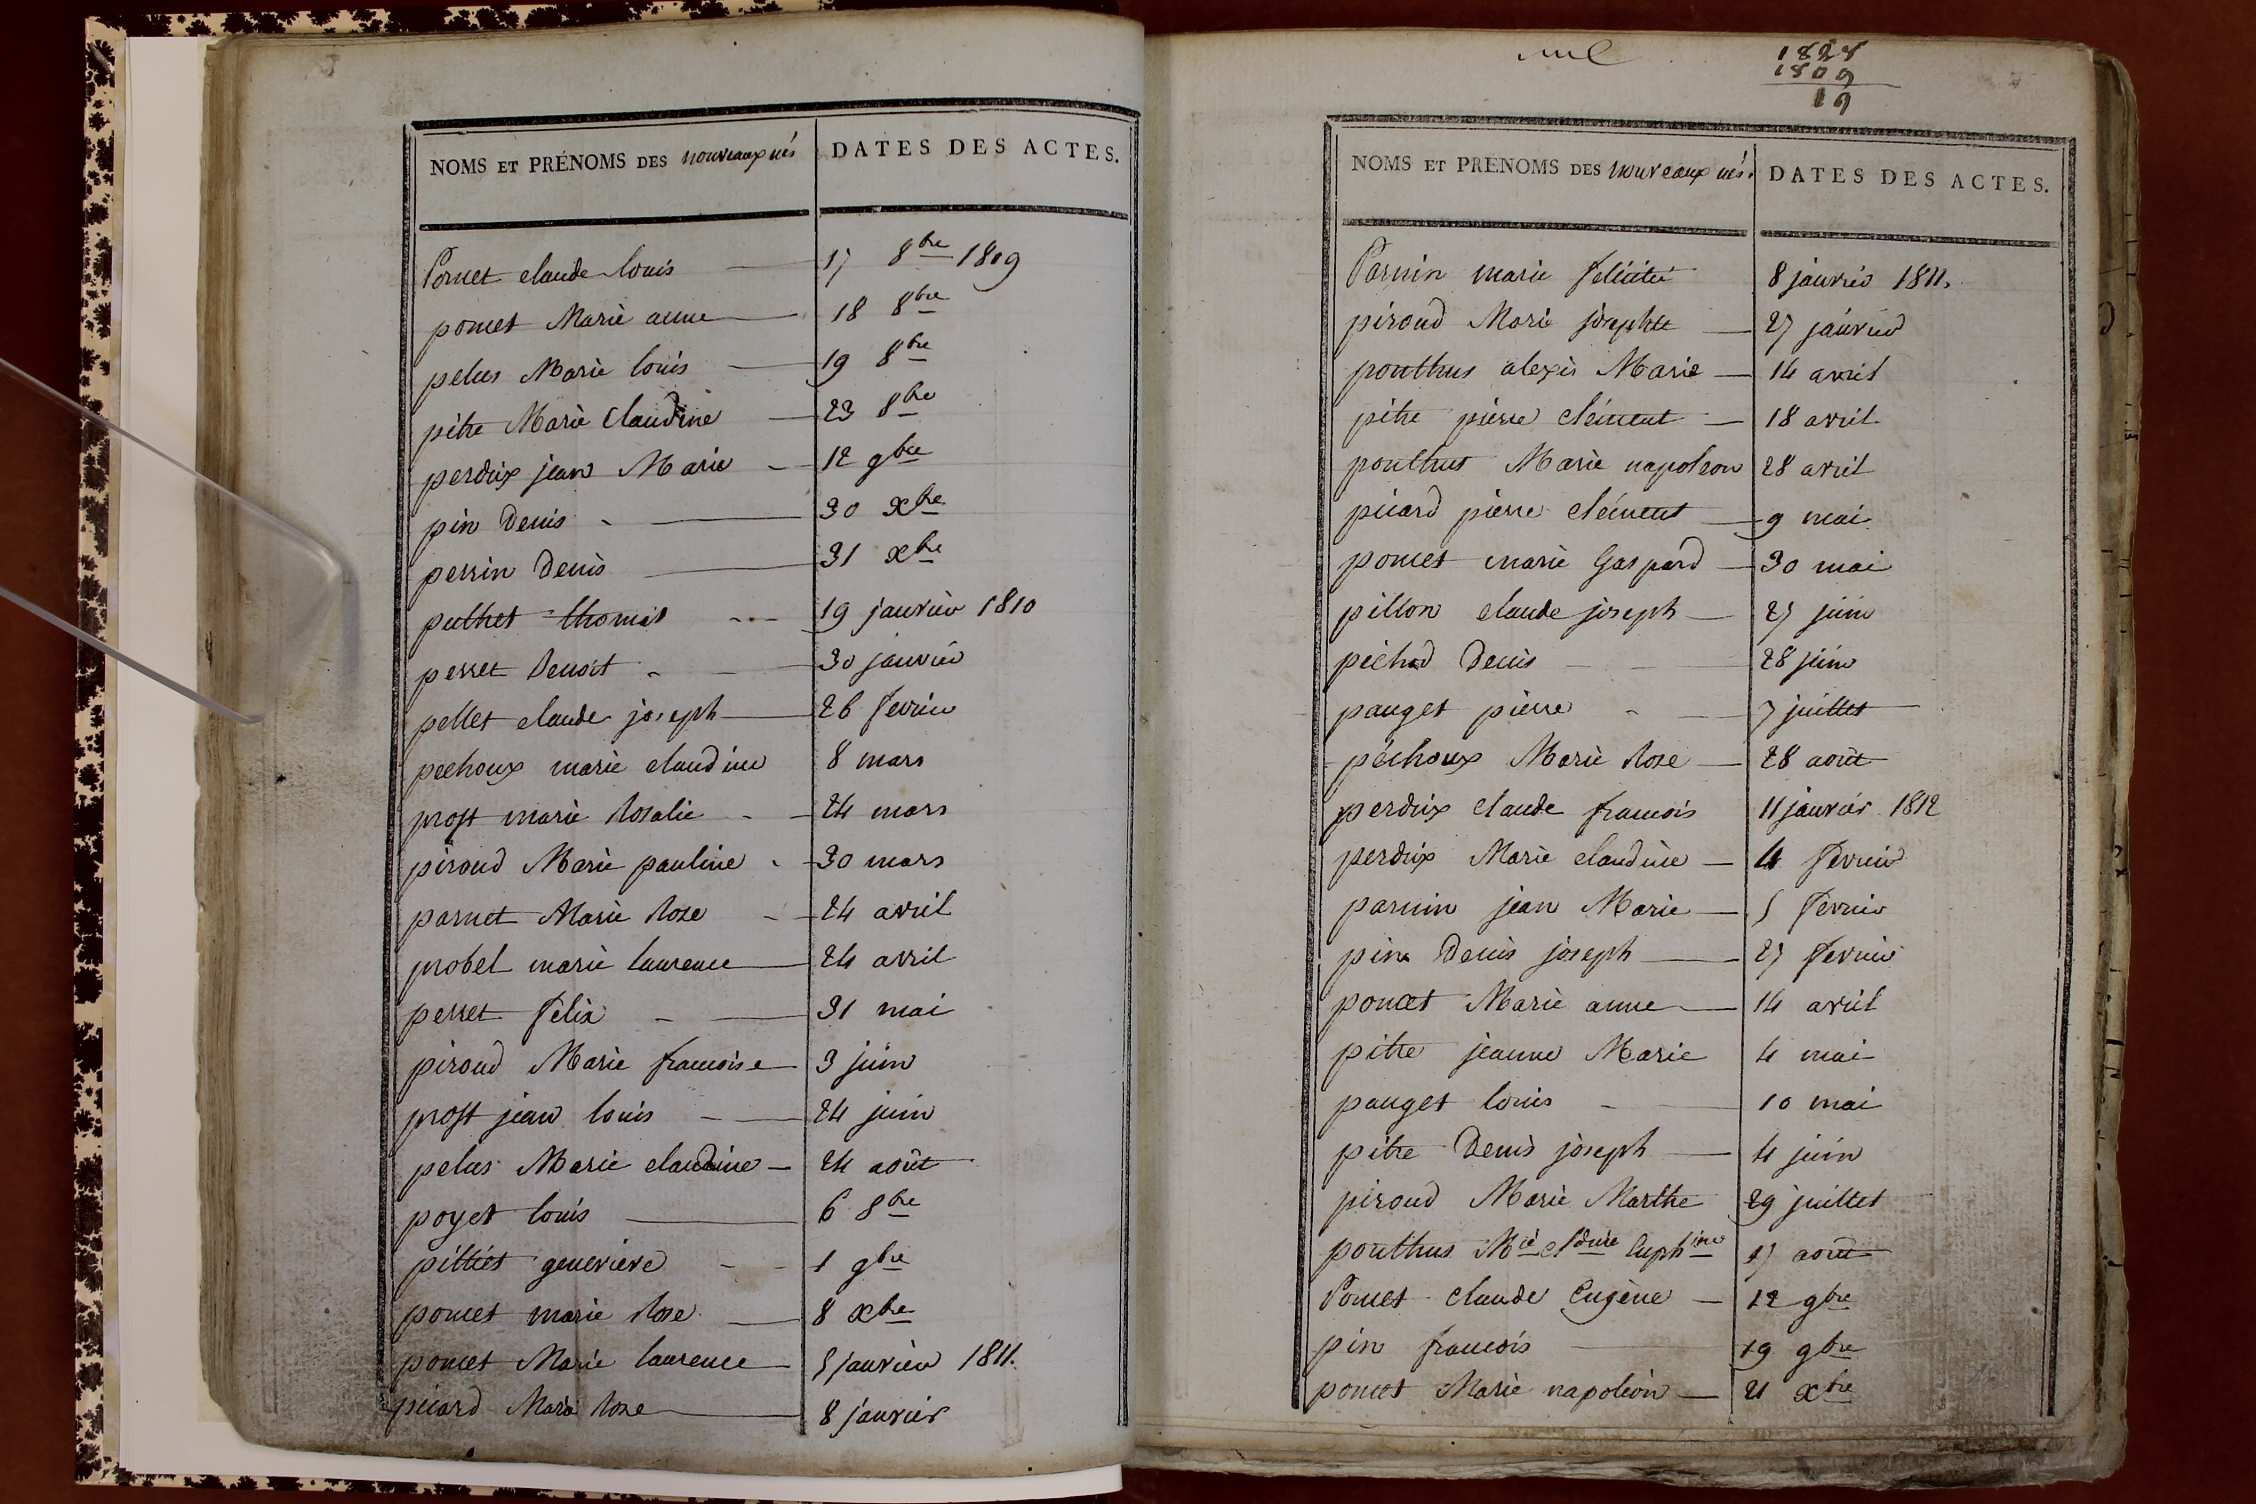 NOMS ET PRÉNOMS DES nouveaux nés DATES DES ACTES.
Poncet claude louis 17 8bre 1809
poncet Marie anne 18 8bre
pelus Marie louis 19 8bre
pitre Marie Claudine 23 8bre
perdrix jean Marie 12 9bre
pin Denis 30 xbre
perrin Denis 31 xbre
puthet thomas 19 janvier 1810
perret benoit 30 janvier
pellet claude joseph 26 fevrier
pechoux marie claudine 8 mars
prost marie Rosalie 24 mars
piroud Marie pauline 30 mars
parnet Marie Rose 24 avril
probel marie laurence 24 avril
perret félix 31 mai
piroud Marie francoise 3 juin
prost jean louis 24 juin
pelus Marie claudine 24 août
poyet louis 6 8bre
pilliet genevieve 1 9bre
poncet marie Rose 8 xbre
poncet Marie laurence 5 janvier 1811.
picard Marie Rose 8 janvier
1828
1809
19
NOMS ET PRÉNOMS DES nouveaux nés. DATES DES ACTES.
Parnin marie felicité 8 janvier 1811.
piroud Marie josephte 27 janvier
pouthus alexis Marie 14 avril
pitre pierre clément 18 avril
pouthus Marie napoleon 28 avril
picard pierre clément 9 mai
poncet marie Gaspard 30 mai
pillon claude joseph 27 juin
péchod Denis 28 juin
pauget pierre 7 juillet
péchoux Marie Rose 28 août
perdrix claude francois 11 janvier 1812
perdrix Marie claudine 4 fevrier
parnin jean Marie 5 fevrier
pin Denis joseph 27 fevrier
poncet Marie anne 14 avril
pitre jeanne Marie 4 mai
pauget louis 10 mai
pitre Denis joseph 4 juin
piroud Marie Marthe 29 juillet
pouthus Mie Cldine Euphine 17 août
Poncet Claude Eugène 12 9bre
pin francois 19 9bre
poncet Marie napoléon 21 xbre